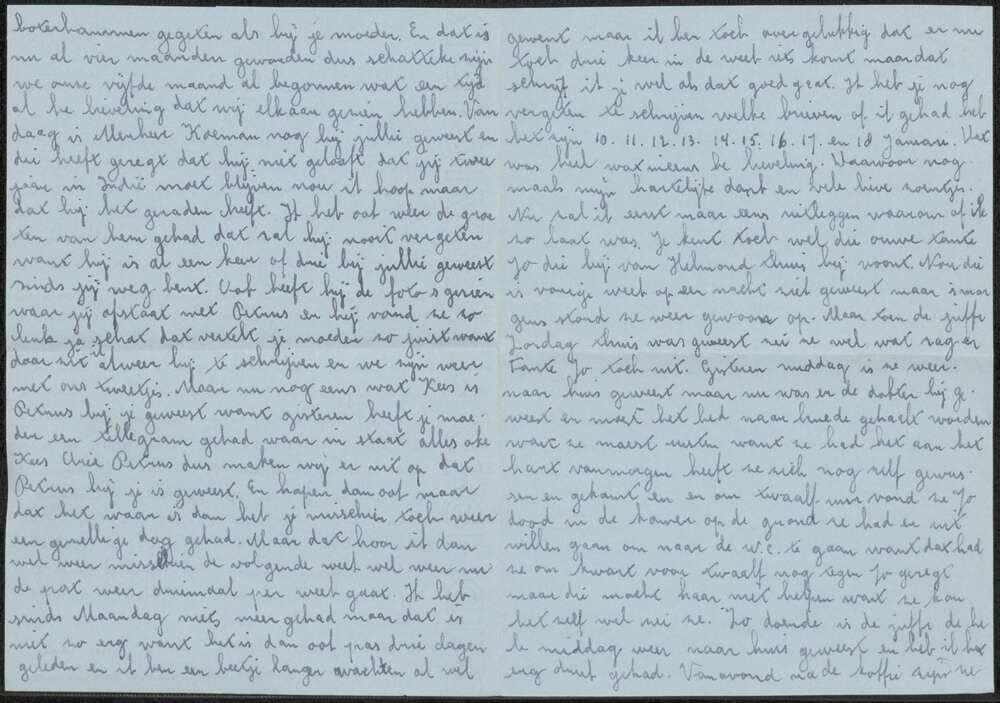 boterhammen gegeten als bij je moeder. En dat is
nu al vier maanden geworden dus schatteke zijn
we onze vijfde maand al begonnen wat een tijd
al be bevelling dat wij elkaar gezien hebben. Van
daag is Menheer Koeman nog bij jullie geweest en
die heeft gezegt dat hij niet gelooft dat jij twee
jaar in Indië moet blijven nou ik hoop maar
dat hij het geraden heeft. Ik heb ook weer de groe
ten van hem gehad dat zal hij nooit vergeten
want hij is al een keer of drie bij jullie geweest
sinds jij weg bent. Ook heeft hij de foto's gezien
waar jij opstaat met Petrus en hij vond ze zo
leuk ja schat dat vertelt je moeder zo juist want
daar zit ik alweer bij te schrijven en we zijn weer
met ons tweetjes. Maar nu nog eens wat Kees is
Petrus bij je geweest want gisteren heeft je moe-
der een tellegram gehad waar in staat alles oke
Kees Arie Petrus dus maken wij er uit op dat
Petrus bij je is geweest. En hopen dan ook maar
dat het waar is dan heb je misschien toch weer
een gezellige dag gehad. Maar dat hoor ik dan
wel weer misschien de volgende week wel weer nu
de post weer driemaal per week gaat. Ik heb
sinds Maandag niets meer gehad maar dat is
niet zo erg want het is dan ook pas drie dagen
geleden en ik ben een beetje langer wachten al wel
gewent maar ik ben toch overgelukkig dat er nu
toch drie keer in de week iets komt maar dat
schrijf ik je wel als dat goed gaat. Ik heb je nog
vergeten te schrijven welke brieven of ik gehad heb
het zijn 10. 11. 12. 13. 14. 15. 16. 17. en 18 Januarie. Dat
was heel wat nieuws be beveling. Daarvoor nog-
maals mijn hartelijke dank en vele lieve zoentjes.
Nu zal ik eerst maar eens uitleggen waarom of ik
zo laat was. Je kent toch wel die ouwe tante
Jo die bij van Helmond thuis bij woont. Nou die
is vorige week op een nacht niet geweest maar smor
gens stond ze weer gewoon op. Maar toen de juffr
Zondag thuis was geweest zei ze wel wat zag er
Tante Jo toch uit. Gisteren middag is ze weer
naar huis geweest maar nu was er de dokter bij ge-
weest en moest het bed naar benede gehaalt worden
want ze moest rusten want ze had het aan het
hart vanmorgen heeft ze zich nog zelf gewas-
sen en gekamt en en om twaalf uur vond ze Jo
dood in de kamer op de grond ze had er uit
willen gaan om naar de w.c. te gaan want dat had
ze om kwart voor twaalf nog tegen Jo gezegt
maar die mocht haar niet helpen want ze kon
het zelf wel zei ze. Zo doende is de juffr de he
le middag weer naar huis geweest en heb ik het
erg druk gehad. Vanavond na de koffie zijn ze